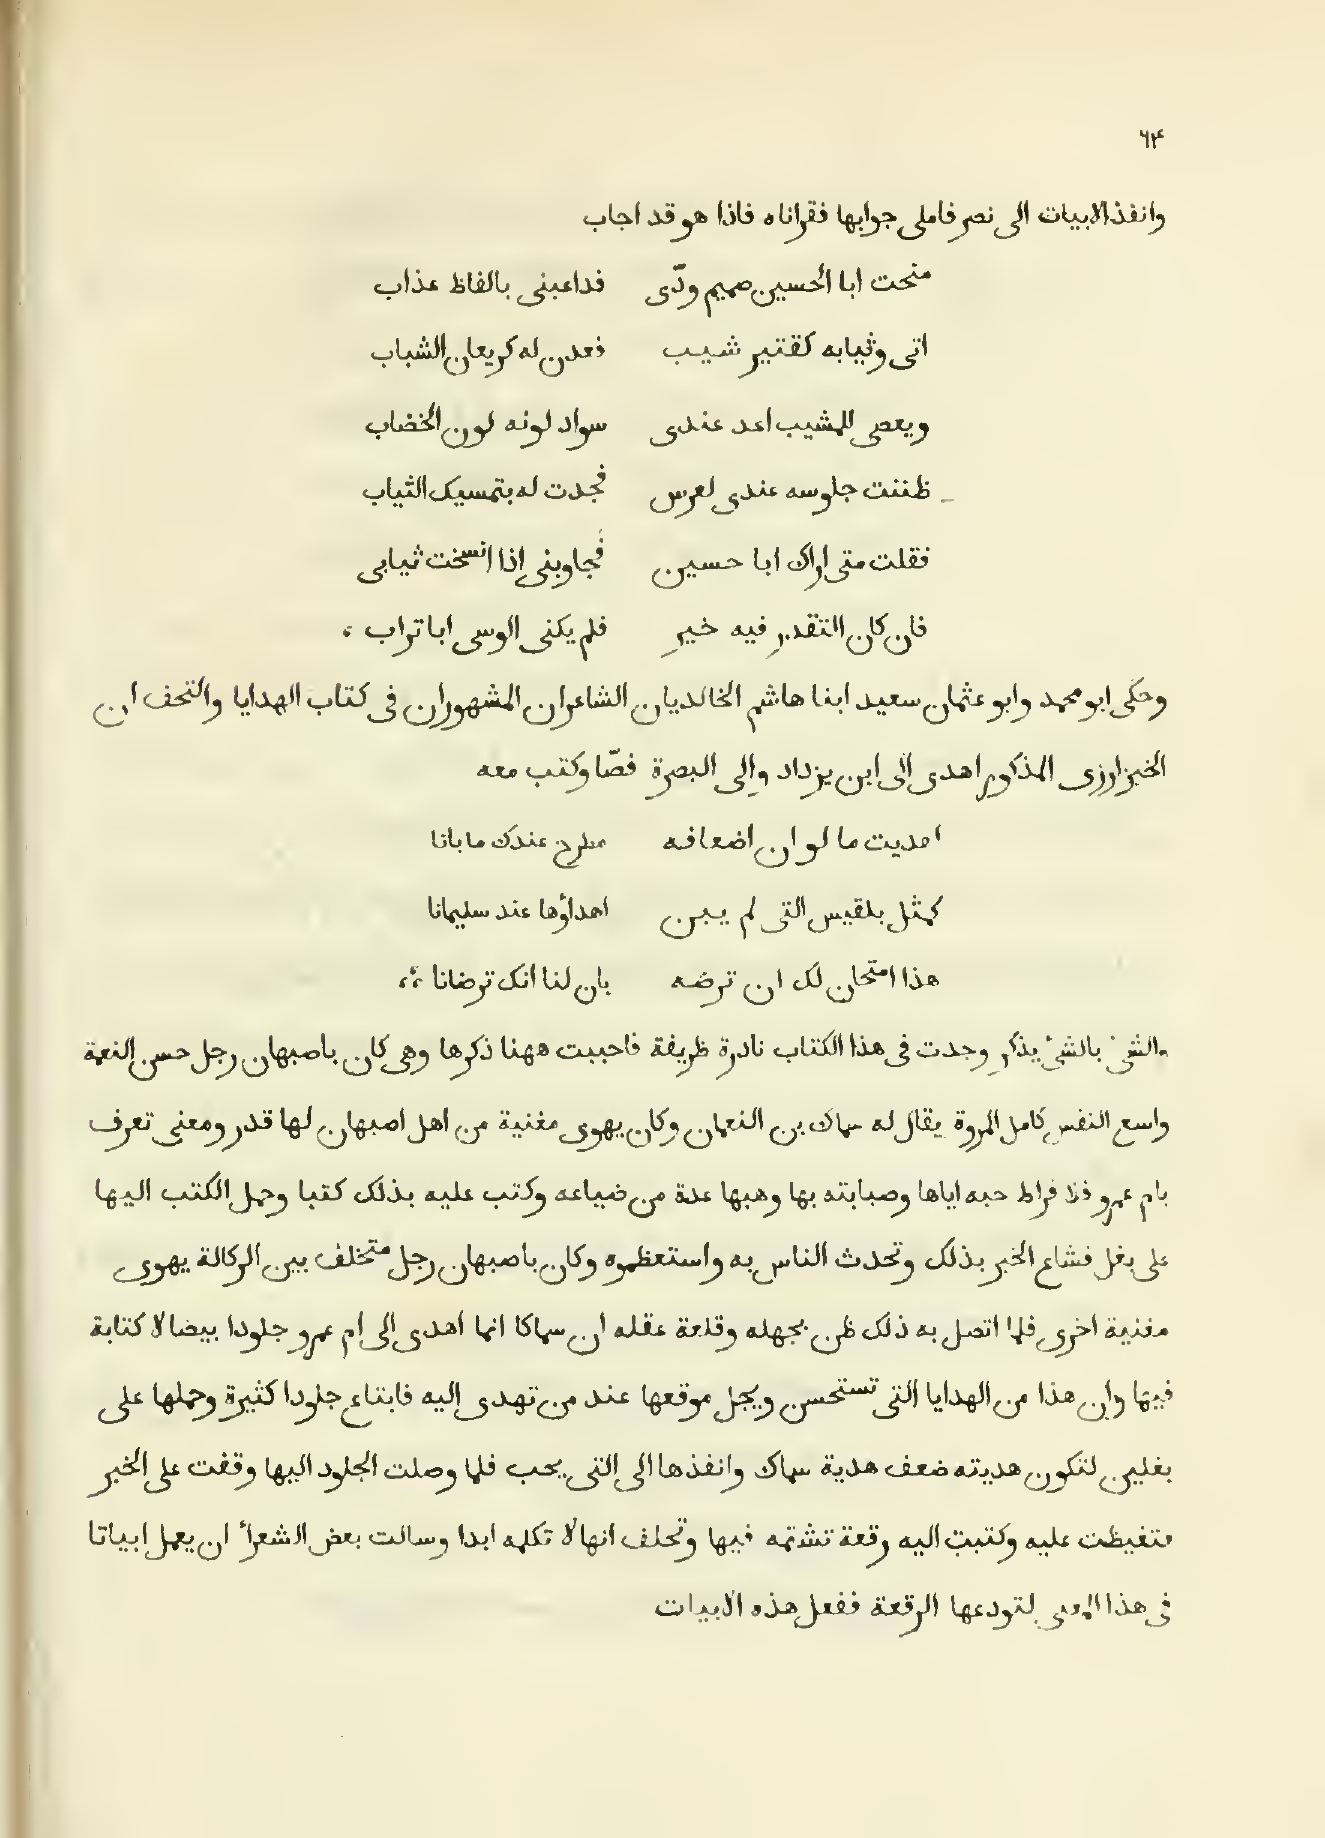 ٦٤
وانفذ الابيات الى نصر فاملى جوابها فقراناه فاذا هو قد اجاب
منحت ابا الحسين صميم ودّى فداعبنى بالفاظ عذاب
اتى وثيابه كقتير شيب فعدن له كريعان الشباب
وبعضى للمشيب اعد عندى سواد لونه لون الخضاب
ظننت جلوسه عندى لعرس فجدت له بتمسيك الثياب
فقلت متى اراك ابا حسين فجاوبنى اذا اتسخت ثيابى
فان كان التقدر فيه خير فلم يكنى الوسى ابا تراب ،
وحكى ابو محمد وابو عثمان سعيد ابنا هاشم الخالديان الشاعران المشهوران فى كتاب الهدايا والتحف ان
الخبزارزى المذكور اهدى الى ابن يزداد والى البصرة فصّا وكتب معه
اهديت ما لو ان اضعافه مطرح عندك ما بانا
كمثل بلقيس التى لم يبن اهداؤها عند سليمانا
هذا امتحان لك ان ترضه بان لنا انك ترضانا ،،
والشىء بالشىء يذكر وجدت فى هذا الكتاب نادرة ظريفة فاحببت ههنا ذكرها وهى كان باصبهان رجل حسن النعمة
واسع النفس كامل المروة يقال له سماك بن النعمان وكان يهوى مغنية من اهل اصبهان لها قدر ومعنى تعرف
بام عمرو فلا فراط حبه اياها وصبابته بها وهبها عدة من ضياعه وكتب عليه بذلك كتبا وحمل الكتب اليها
على بغل فشاع الخبر بذلك وتحدث الناس به واستعظموه وكان باصبهان رجل متخلف بين الركالة يهوى
مغنية اخرى فلما اتصل به ذلك ظن بجهله وقلعة عقله ان سماكا انما اهدى الى ام عمرو جلودا بيضا لا كتابة
فيها وان هذا من الهدايا التى تستحسن ويجل موقعها عند من تهدى اليه فابتاع جلودا كثيرة وحملها على
بغلين لتكون هديته ضعف هدية سماك وانفذها الى التى يحب فلما وصلت الجلود اليها وقفت على الخبر
متغيظت عليه وكتبت اليه رقعة تشتمه فيها وتحلف انها لا تكلمه ابدا وسالت بعض الشعراٴ ان يعمل ابياتا
فى هذا المعنى لتودعها الرقعة ففعل هذه الابيات